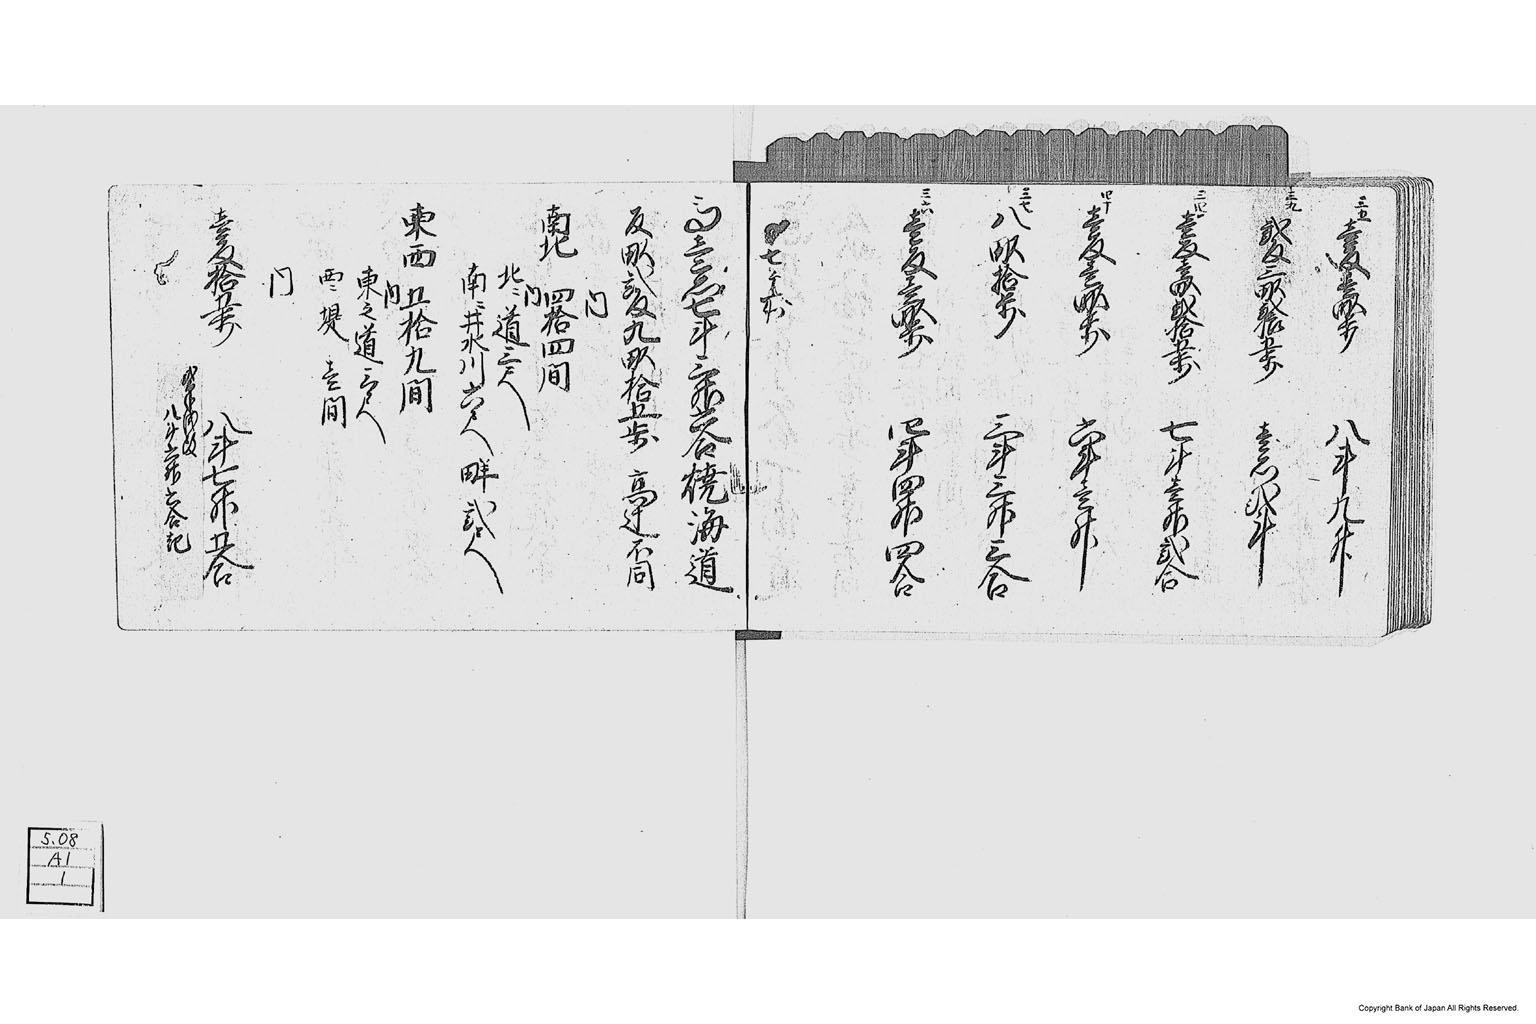 三五
壱反壱畝歩 八斗九升
三九
弐反三畝拾五歩 壱石弐斗
三四
壱反壱畝弐拾五歩 七斗壱升弐合
四十
壱反壱畝歩 六斗三升
三七
八畝拾歩 三斗三升三合
三六
壱反三畝歩 四斗四升四合
高壱石七斗三升六合 焼海道
反畝弐反九畝拾五歩 高辻不同
南北 四拾四間
北ニ道三尺
南ニ井水川六尺 畔弐尺
東西 五拾九間
東之道三尺
西ニ堤 壱間
壱反拾五歩 八斗七升五合
八斗六升六合記
5.08
A1
1
Copyright Bank of Japan All Rights Reserved.